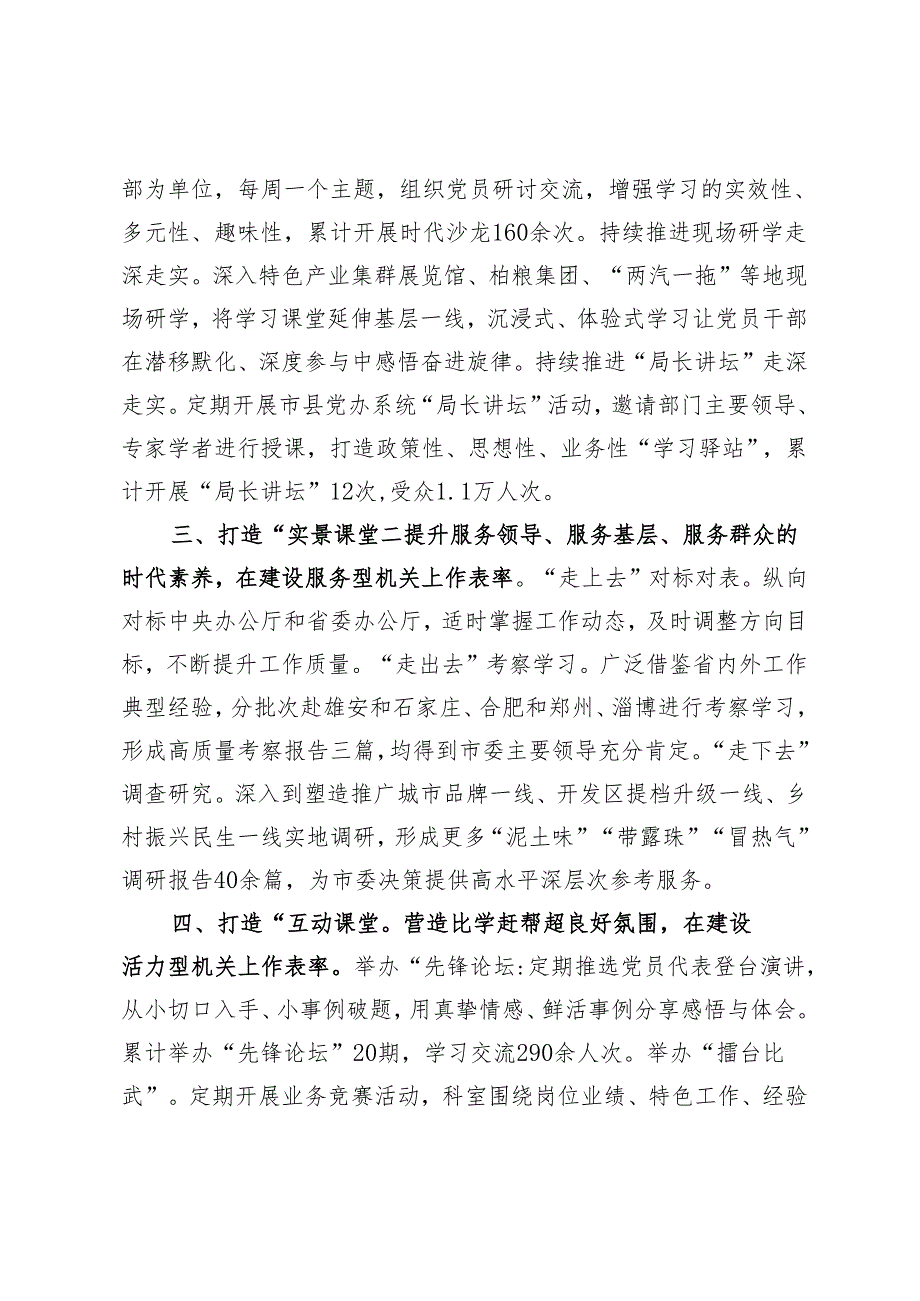 部为单位，每周一个主题，组织党员研讨交流，增强学习的实效性、
多元性、趣味性，累计开展时代沙龙160余次。持续推进现场研学走
深走实。深入特色产业集群展览馆、柏粮集团、“两汽一拖”等地现
场研学，将学习课堂延伸基层一线，沉浸式、体验式学习让党员干部
在潜移默化、深度参与中感悟奋进旋律。持续推进“局长讲坛”走深
走实。定期开展市县党办系统“局长讲坛”活动，邀请部门主要领导、
专家学者进行授课，打造政策性、思想性、业务性“学习驿站”，累
计开展“局长讲坛”12次,受众1.1万人次。
三、打造“实景课堂二提升服务领导、服务基层、服务群众的
时代素养，在建设服务型机关上作表率。“走上去”对标对表。纵向
对标中央办公厅和省委办公厅，适时掌握工作动态，及时调整方向目
标，不断提升工作质量。“走出去”考察学习。广泛借鉴省内外工作
典型经验，分批次赴雄安和石家庄、合肥和郑州、淄博进行考察学习，
形成高质量考察报告三篇，均得到市委主要领导充分肯定。“走下去”
调查研究。深入到塑造推广城市品牌一线、开发区提档升级一线、乡
村振兴民生一线实地调研，形成更多“泥土味”“带露珠”“冒热气”
调研报告40余篇，为市委决策提供高水平深层次参考服务。
四、打造“互动课堂。营造比学赶帮超良好氛围，在建设
活力型机关上作表率。举办“先锋论坛:定期推选党员代表登台演讲，
从小切口入手、小事例破题，用真挚情感、鲜活事例分享感悟与体会。
累计举办“先锋论坛”20期，学习交流290余人次。举办“擂台比
武”。定期开展业务竞赛活动，科室围绕岗位业绩、特色工作、经验